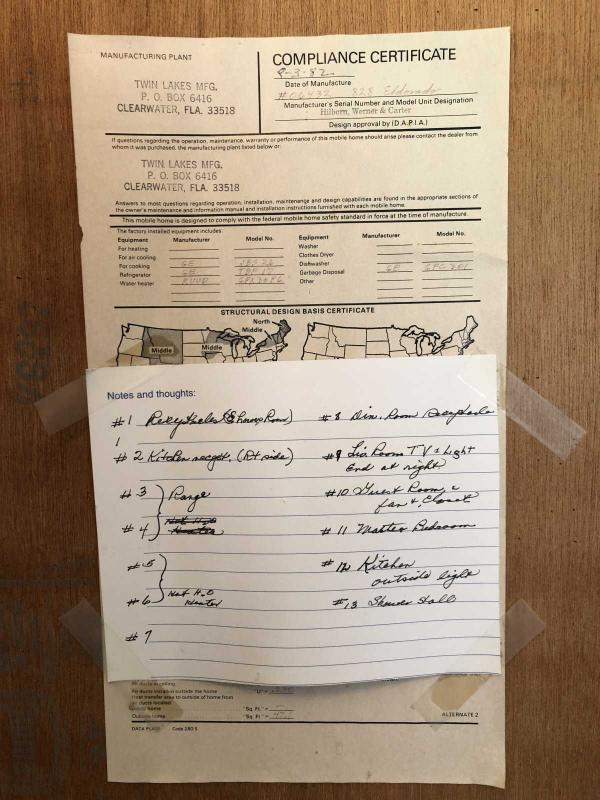 MANUFACTURING PLANT
TWIN LAKES MFG.
P. O. BOX 6416
CLEARWATER, FLA. 33518
COMPLIANCE CERTIFICATE
9-3-82
Date of Manufacture
#C6432 828 Eldorado
Manufacturer's Serial Number and Model Unit Designation
Hilborn, Werner & Carter
Design approval by (D.A.P.I.A.)
If questions regarding the operation, maintenance, warranty or performance of this mobile home should arise please contact the dealer from
whom it was purchased, the manufacturing plant listed below or:
TWIN LAKES MFG.
P. O. BOX 6416
CLEARWATER, FLA. 33518
Answers to most questions regarding operation, installation, maintenance and design capabilities are found in the appropriate sections of
the owner's maintenance and information manual and installation instructions furnished with each mobile home.
This mobile home is designed to comply with the federal mobile home safety standard in force at the time of manufacture.
The factory installed equipment includes:
Equipment Manufacturer Model No. Equipment Manufacturer Model No.
For heating Washer
For air cooling Clothes Dryer
For cooking GE Dishwasher GE
Refrigerator GE Garbage Disposal
Water heater RUUD Other
STRUCTURAL DESIGN BASIS CERTIFICATE
North
Middle
Middle
Middle
Notes and thoughts:
#1 Receptacles
1
#2 Kitchen recept. (Rt side)
#3
Range
#4 Hot H2O
Heater
#5
#6 Hot H2O
Heater
#7
#8 Din. Room Receptacle
#9 Liv. Room TV & Light
End at right
#10 Guest Room
fan & Closet
#11 Master Bedroom
#12 Kitchen
outside light
#13 Shower Hall
Air ducts in ceiling
Air ducts installed outside the home "U" =
Heat transfer area to outside of home from
air ducts located
home "Sq. Ft." =
Outside home "Sq. Ft." =
DATA PLATE Code 280 S
ALTERNATE 2